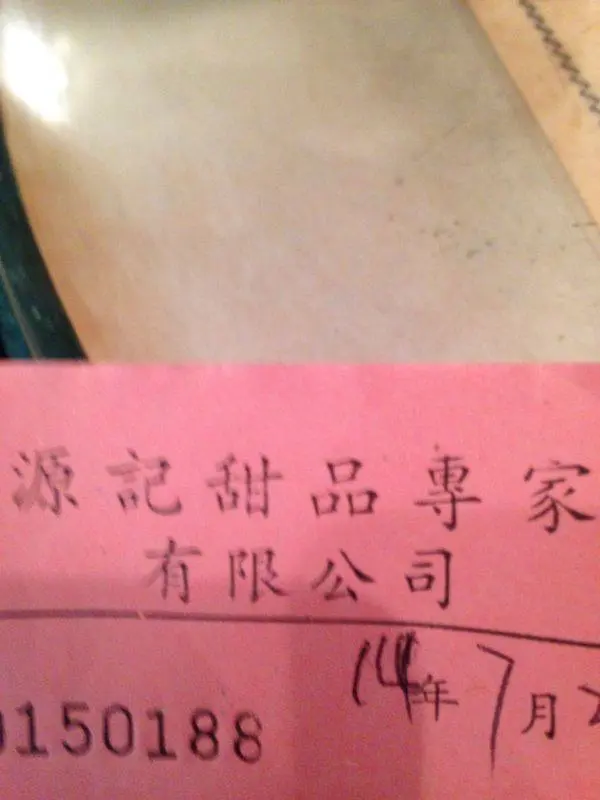 源記甜品專家
有限公司
14年7月2
0150188